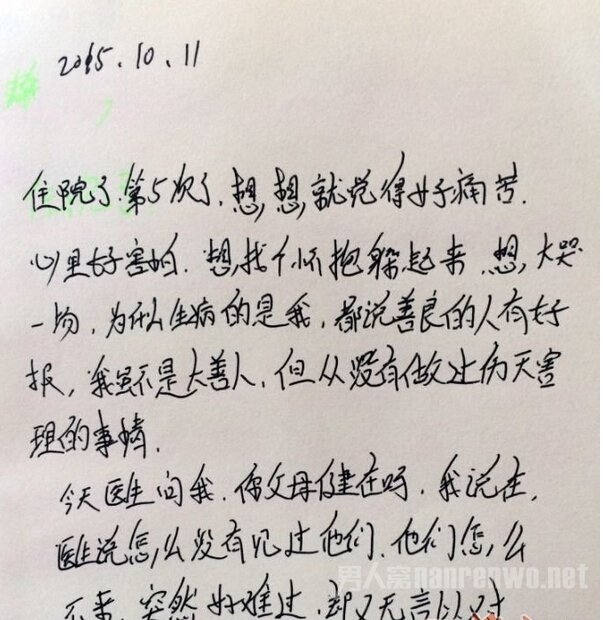 2015.10.11
住院了.第5次了.想,想,就觉得好痛苦.
心里好害怕.想,找个怀抱躲起来.想,大哭
一场,为什么生病的是我,都说善良的人有好
报,我虽不是大善人,但从没有做过伤天害
理的事情.
今天医生问我.你父母健在吗,我说在,
医生说怎,么没有见过他们.他们怎,么
不来,突然好难过,却又无言以对
男人窝nanrenwo.net